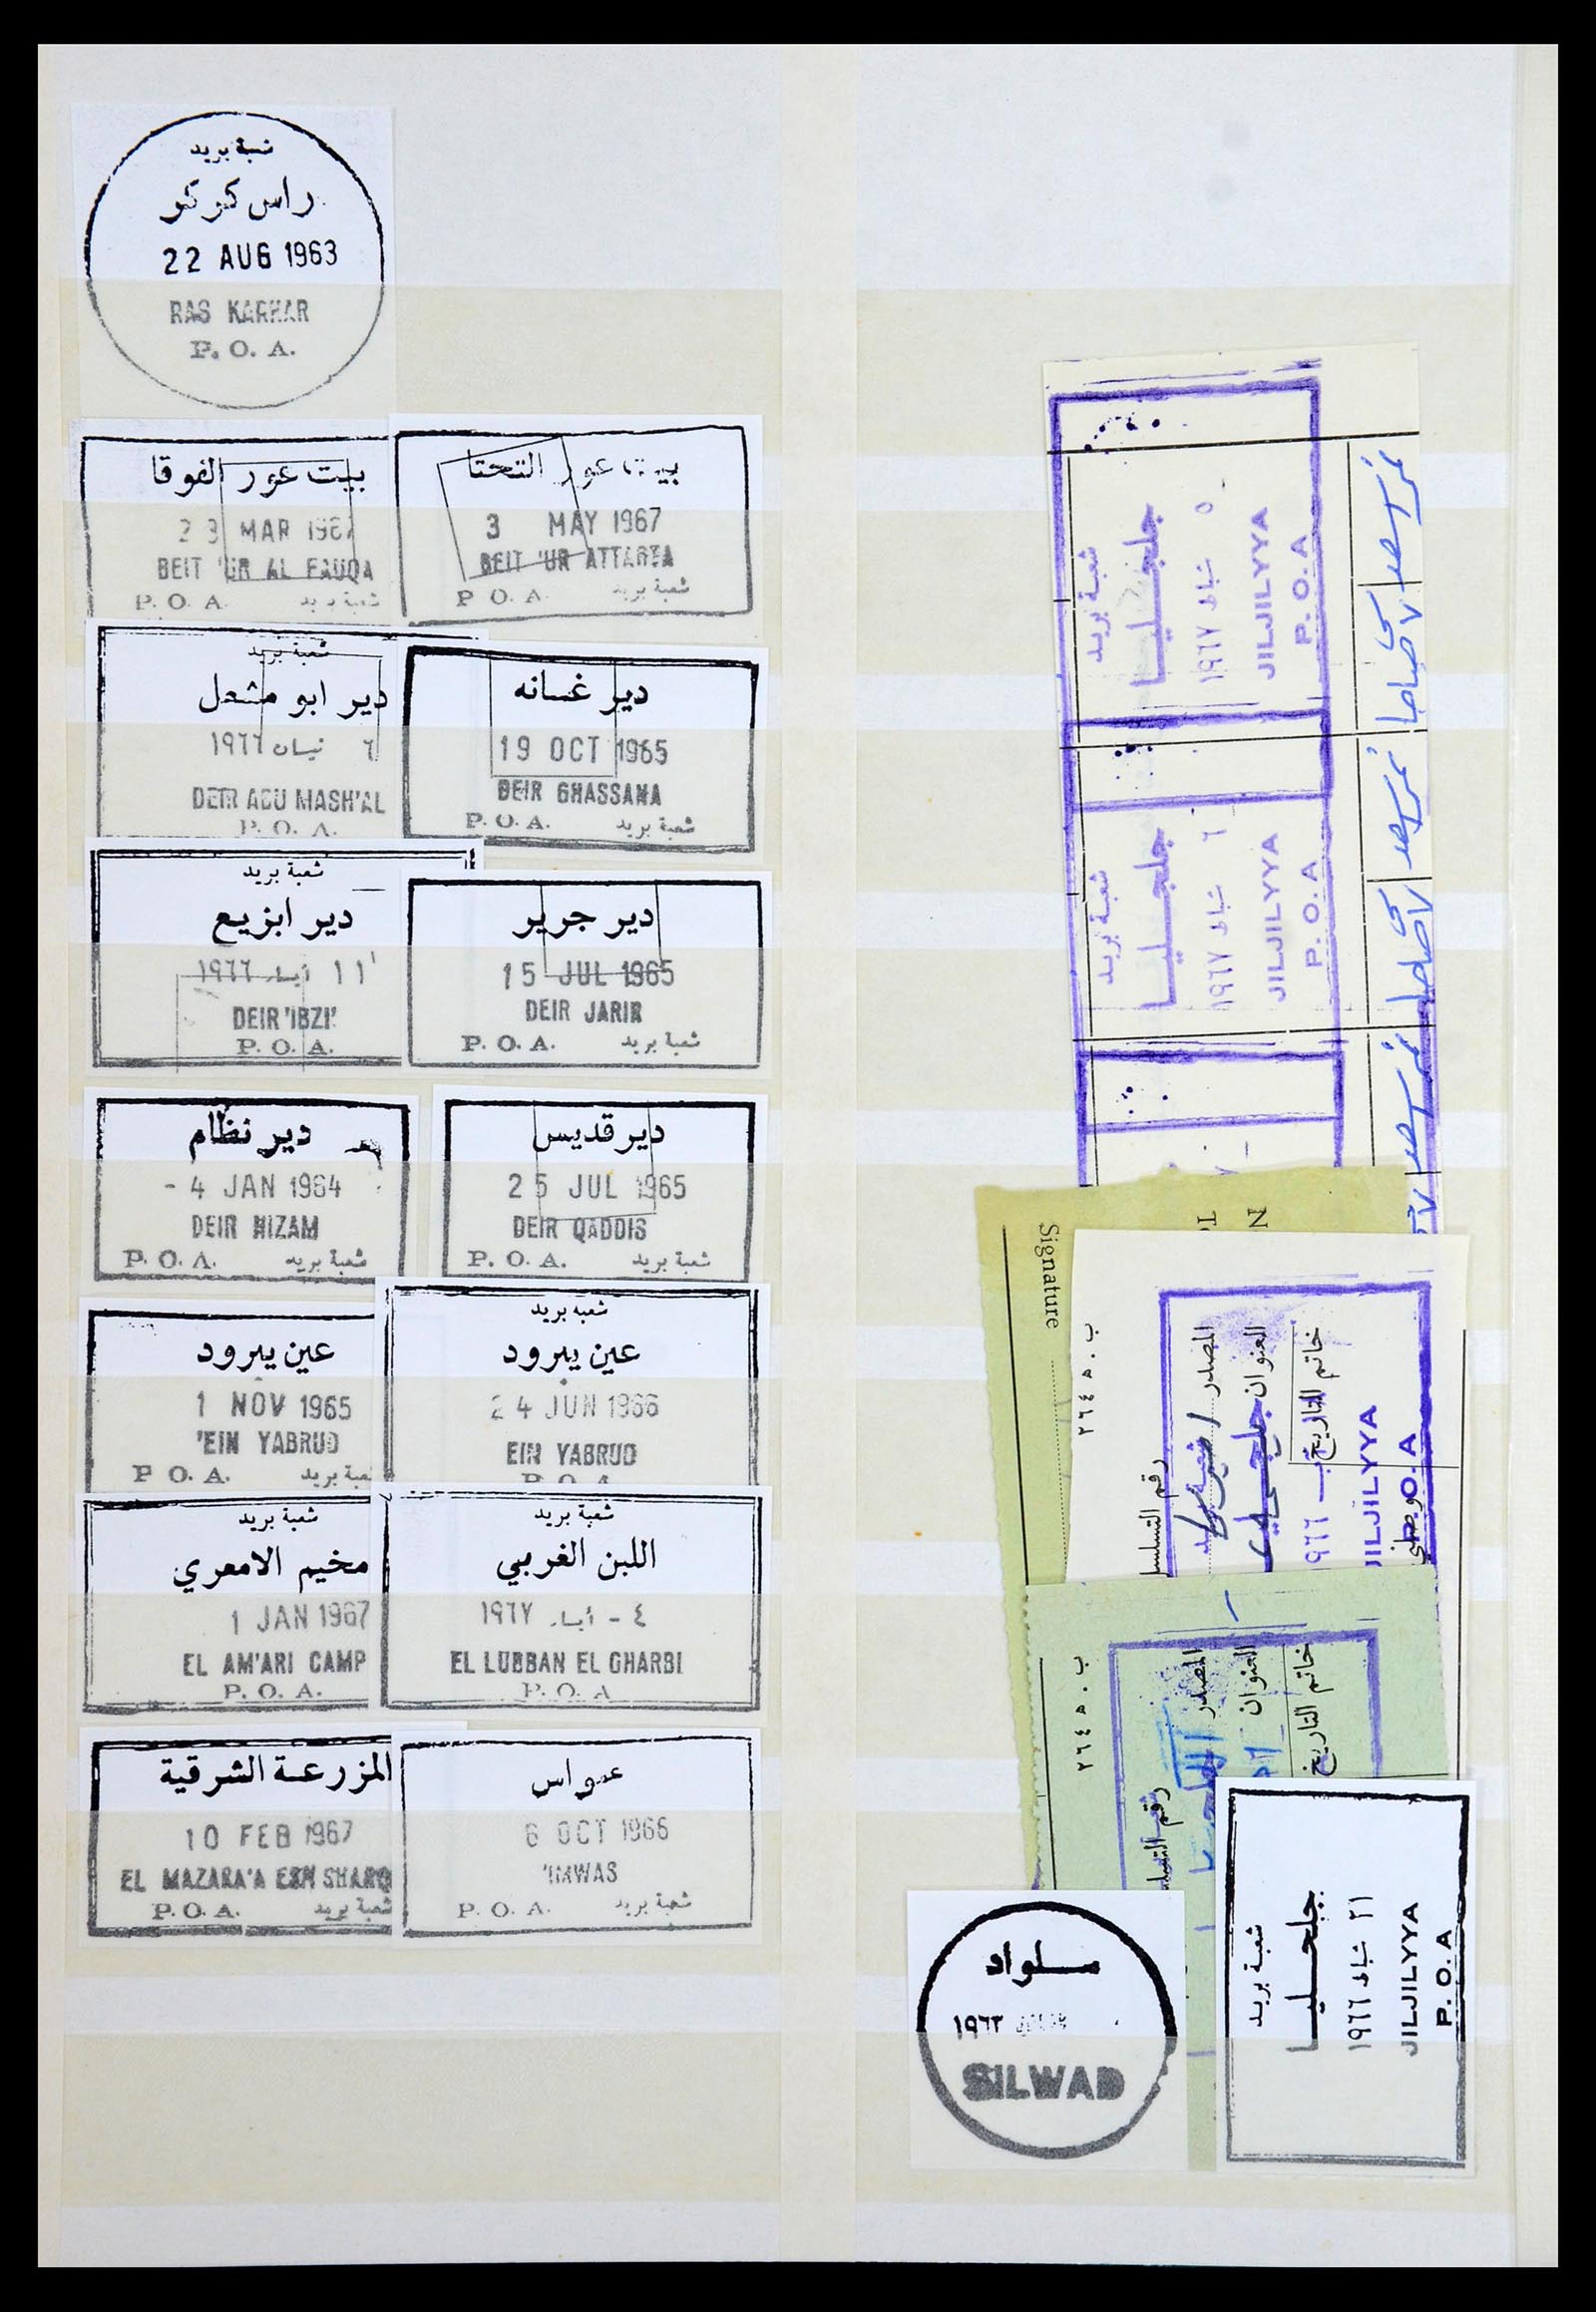 شعبة بريد
راس كركر
22 AUG 1963
RAS KARKAR
P. O. A.
بيت عور الفوقا
23 MAR 1967
BEIT 'UR AL FAUQA
P. O. A. شعبة بريد
بيت عور التحتا
3 MAY 1967
BEIT 'UR ATTAHTA
P. O. A. شعبة بريد
شعبة بريد
دير ابو مشعل
٦ نيسان ١٩٦٦
DEIR ABU MASH'AL
P. O. A.
دير غسانه
19 OCT 1965
DEIR GHASSANA
P. O. A. شعبة بريد
شعبة بريد
دير ابزيع
١١ أيار ١٩٦٦
DEIR 'IBZI'
P. O. A.
دير جرير
15 JUL 1965
DEIR JARIR
P. O. A. شعبة بريد
دير نظام
- 4 JAN 1964
DEIR NIZAM
P. O. A. شعبة بريد
دير قديس
25 JUL 1965
DEIR QADDIS
P. O. A. شعبة بريد
عين يبرود
1 NOV 1965
'EIN YABRUD
P. O. A. شعبة بريد
شعبه بريد
عين يبرود
24 JUN 1966
EIN YABRUD
P. O. A
شعبة بريد
مخيم الامعري
1 JAN 1967
EL AM'ARI CAMP
P. O. A.
شعبة بريد
اللبن الغربي
٤ - أيار ١٩٦٧
EL LUBBAN EL GHARBI
P. O. A
المزرعة الشرقية
10 FEB 1967
EL MAZARA'A ESH SHARQ
P. O. A. شعبة بريد
عمواس
6 OCT 1966
'IMWAS
P. O. A. شعبة بريد
شعبة بريد
جلجليا
٥ شباط ١٩٦٧
JILJILYYA
P. O. A
شعبة بريد
جلجليا
٦ شباط ١٩٦٧
JILJILYYA
P. O. A
Signature
N
ب . ٥ ٢٦٤
رقم التسلسل
المصدر
العنوان جلجليا
خاتم التاريخ
JILJILYYA
O. A
ب . ٥ ٢٦٤
رقم
المصدر
العنوان
خاتم التاريخ
سلواد
١٩٦٣
SILWAD
شعبة بريد
جلجليا
٢١ شباط ١٩٦٦
JILJILYYA
P. O. A